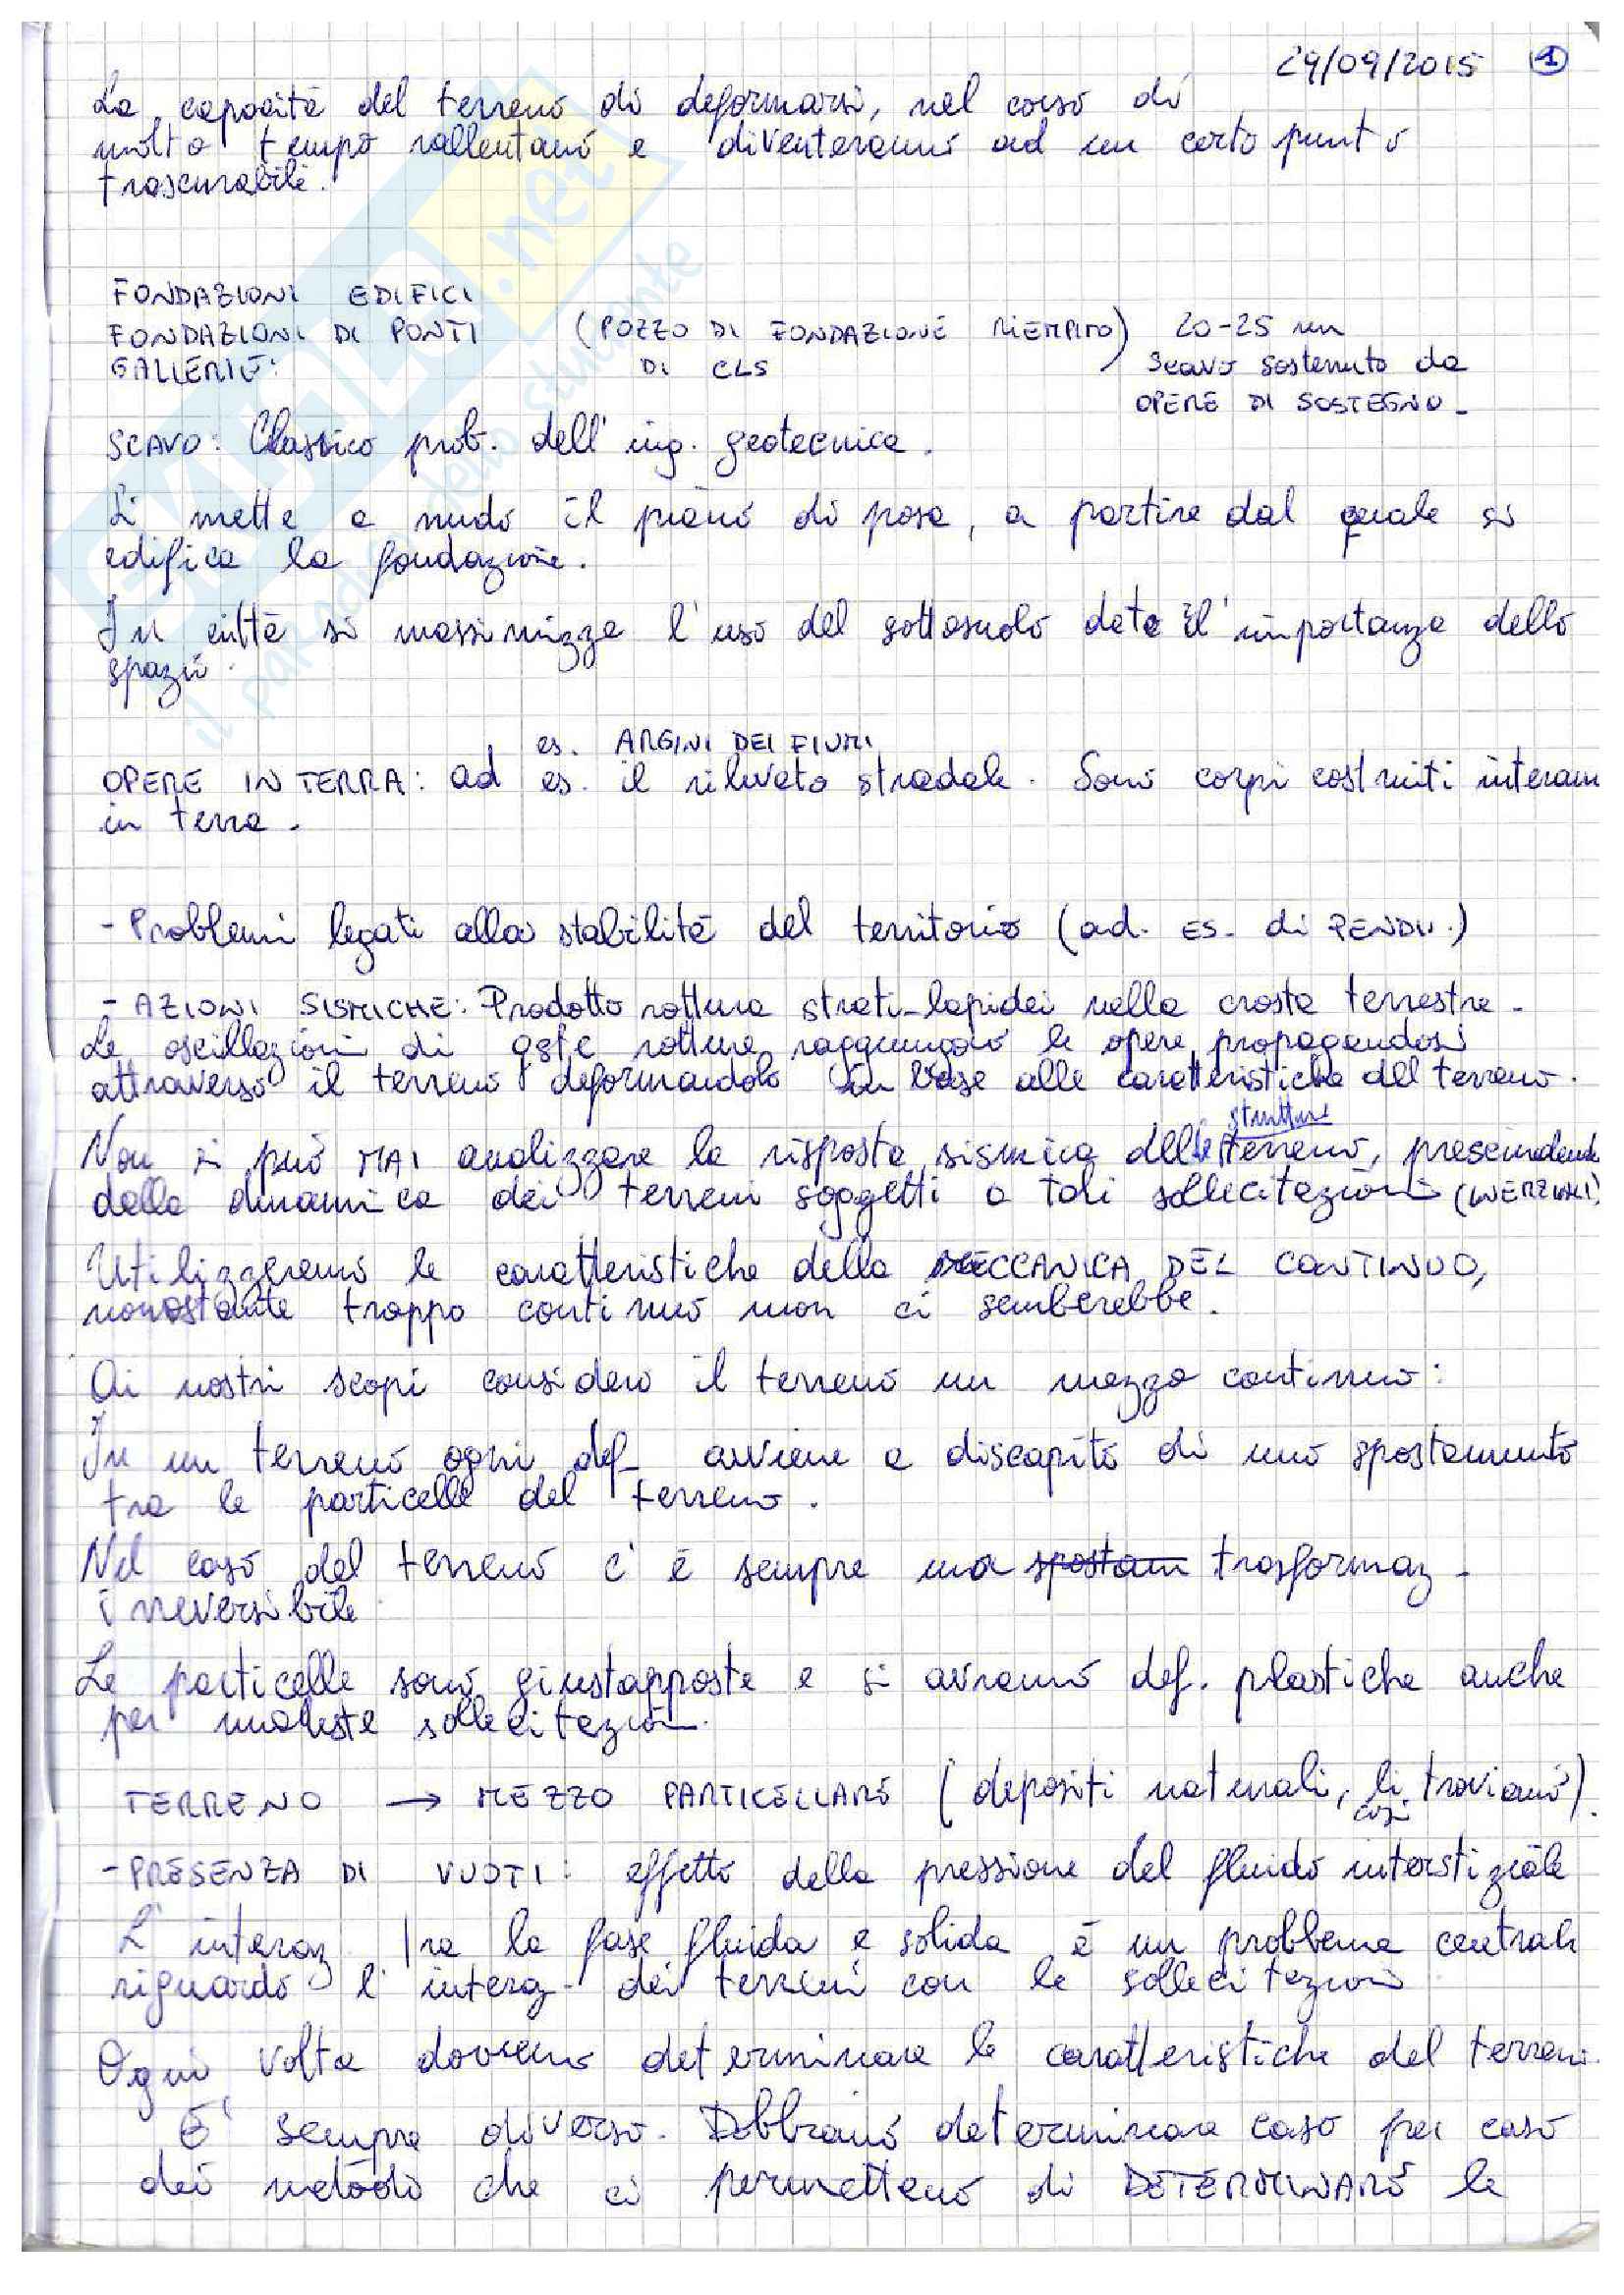 29/09/2015 1
La capacità del terreno di deformarsi, nel corso di
molto tempo rallentano e diventeranno ad un certo punto
trascurabili.
FONDAZIONI EDIFICI
FONDAZIONI DI PONTI (POZZO DI FONDAZIONE RIEMPITO) 20-25 m
GALLERIE: DI CLS Scavo sostenuto da
OPERE DI SOSTEGNO.
SCAVO: Classico prob. dell'ing. geotecnica.
Si mette a nudo il piano di posa, a partire dal quale si
edifica la fondazione.
In città si massimizza l'uso del sottosuolo data l'importanza dello
spazio.
es. ARGINI DEI FIUMI
OPERE IN TERRA: ad es. il rilevato stradale. Sono corpi costruiti interam
in terra.
- Problemi legati alla stabilità del territorio (ad. ES. di PENDII.)
- AZIONI SISMICHE: Prodotto rottura strati lapidei nella crosta terrestre.
Le oscillazioni di qste rotture raggiungono le opere propagandosi
attraverso il terreno deformandolo in base alle caratteristiche del terreno.
strutture
Non si può MAI analizzare la risposta sismica delle terreno, prescindendo
dalla dinamica dei terreni soggetti a tali sollecitazioni (INERZIALI)
Utilizzeremo le caratteristiche della MECCANICA DEL CONTINUO,
nonostante troppo continuo non ci semberebbe.
Ai nostri scopi considero il terreno un mezzo continuo:
In un terreno ogni def. avviene a discapito di uno spostamento
tra le particelle del terreno.
Nel caso del terreno c'è sempre una spostam trasformaz.
irreversibile.
Le particelle sono giustapposte e si avranno def. plastiche anche
per modeste sollecitazioni.
TERRENO → MEZZO PARTICELLARE (depositi naturali, li troviamo).
così
- PRESENZA DI VUOTI: effetto della pressione del fluido interstiziale
L'interaz. tra la fase fluida e solida è un problema centrale
riguardo l'interaz. dei terreni con le sollecitazioni
Ogni volta dovremo determinare le caratteristiche del terreno.
È sempre diverso. Dobbiamo determinare caso per caso
dei metodi che ci permettono di DETERMINARE le
il paradiso dello studente
SKUOLA.net